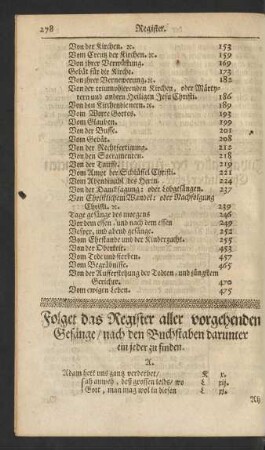 278 Register.
Von der Kirchen. ꝛc. 153
Vom Creutz der Kirchen. ꝛc. 159
Von jhrer Verwüstung. 169
Gebät für die Kirche. 173
Von jhrer Vernewerung. ꝛc. 182
Von der triumphierenden Kirchen, oder Märty-
rern und andern Heiligen Jesu Christi. 186
Von den Kirchendienern. ꝛc. 189
Vom Worte Gottes. 193
Vom Glauben. 199
Von der Busse. 201
Vom Gebät. 208
Von der Rechtfertigung. 212
Von den Sacramenten. 218
Von der Tauffe. 219
Vom Ampt der Schlüssel Christi. 221
Vom Abendmahl des Herrn. 224
Von der Dancksagung: oder Lobgesängen. 237
Von Christlichem Wandel: oder Nachfolgung
Christi. ꝛc. 239
Tage gesänge des morgens 246
Vor dem essen, und nach dem essen 249
Vesper, und abend gesänge. 252
Vom Ehestande und der Kinderzucht. 255
Von der Oberkeit. 453
Vom Tode und sterben. 457
Vom Begräbnisse. 465
Von der Aufferstehung der Todten, und jüngstem
Gerichte. 470
Vom ewigen Leben. 475
Folget das Register aller vorgehenden
Gesänge/ nach den Buchstaben darunter
ein jeder zu finden.
A.
Adam hett uns gantz verderbet/